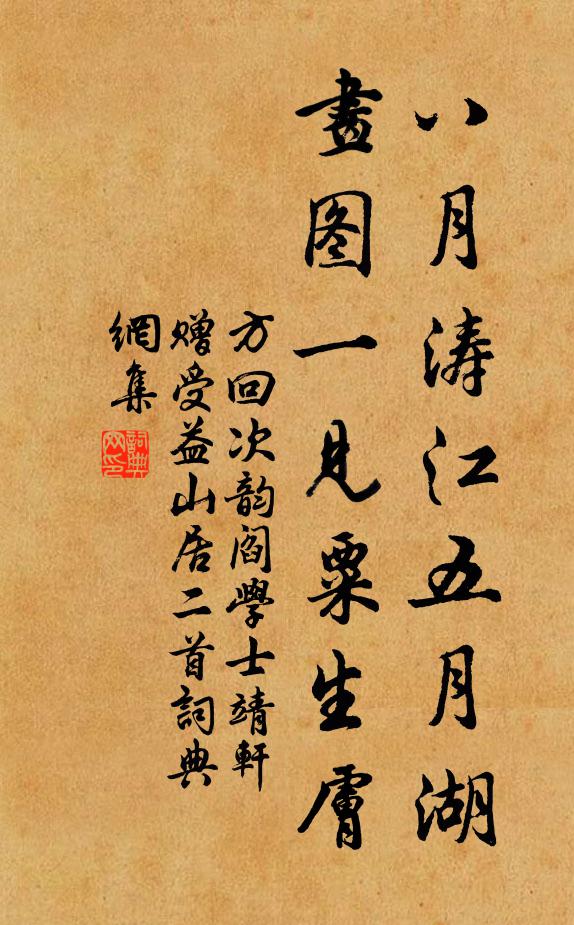 八月涛江五月湖
畫图一見粟生膚
方回次韵阎學士靖軒
赠受益山居二首詞典
網集
詞典
网印